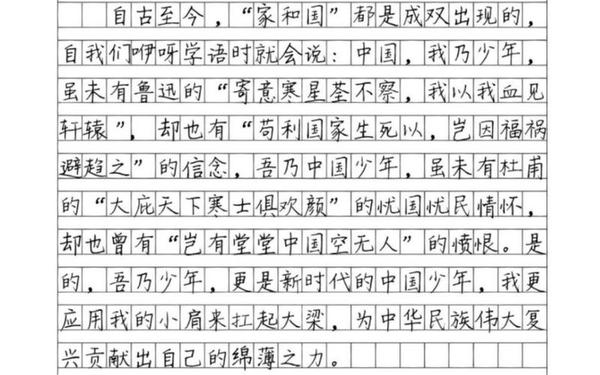 自古至今，“家和国”都是成双出现的，
自我们咿呀学语时就会说：中国，我乃少年，
虽未有鲁迅的“寄意寒星荃不察，我以我血见
轩辕”，却也有“苟利国家生死以，岂因福祸
避趋之”的信念，吾乃中国少年，虽未有杜甫
的“大庇天下寒士俱欢颜”的忧国忧民情怀，
却也曾有“岂有堂堂中国空无人”的愤恨。是
的，吾乃少年，更是新时代的中国少年，我更
应用我的小肩来扛起大梁，为中华民族伟大复
兴贡献出自己的绵薄之力。